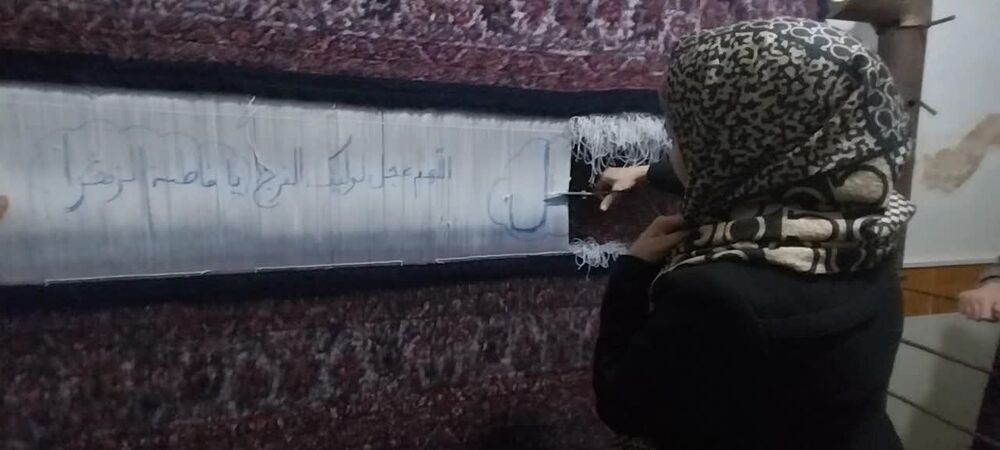 اللهم عجل لولیک الفرج یا فاطمه الزهرا